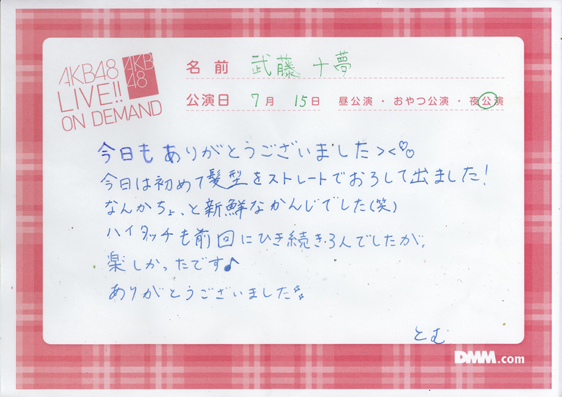 AKB48
LIVE!!
ON DEMAND
AKB
48
名前 武藤 十夢
公演日 7月 15日 昼公演・おやつ公演・夜公演
今日もありがとうございました><♡
今日は初めて髪型をストレートでおろして出ました!
なんかちょっと新鮮なかんじでした(笑)
ハイタッチも前回にひき続き3人でしたが、
楽しかったです♪
ありがとうございました
とむ
DMM.com